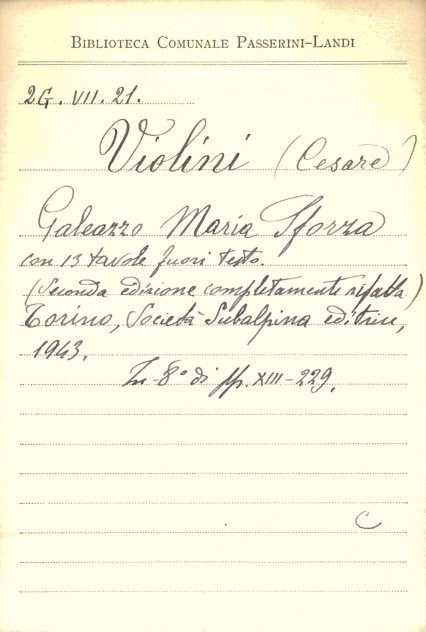 BIBLIOTECA COMUNALE PASSERINI-LANDI
2G. VII. 21.
Violini (Cesare)
Galeazzo Maria Sforza
con 13 tavole fuori testo.
(Seconda edizione completamente rifatta)
Torino, Società Subalpina editrice,
1943.
In-8° di pp. XIII-229.
C